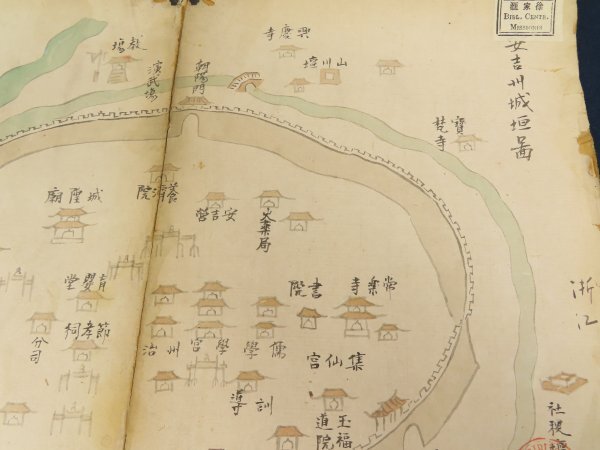 徐家匯
BIBL. CENTR.
MISSIONIS
安吉州城垣圖
興慶寺
山川壇
演武場
朝陽門
寶梵寺
城隍廟
養濟院
安吉營
火藥局
浙江
育嬰堂
常樂寺
書院
節孝祠
分司
儒學
學宮
州治
集仙宮
訓導
玉福道院
社稷